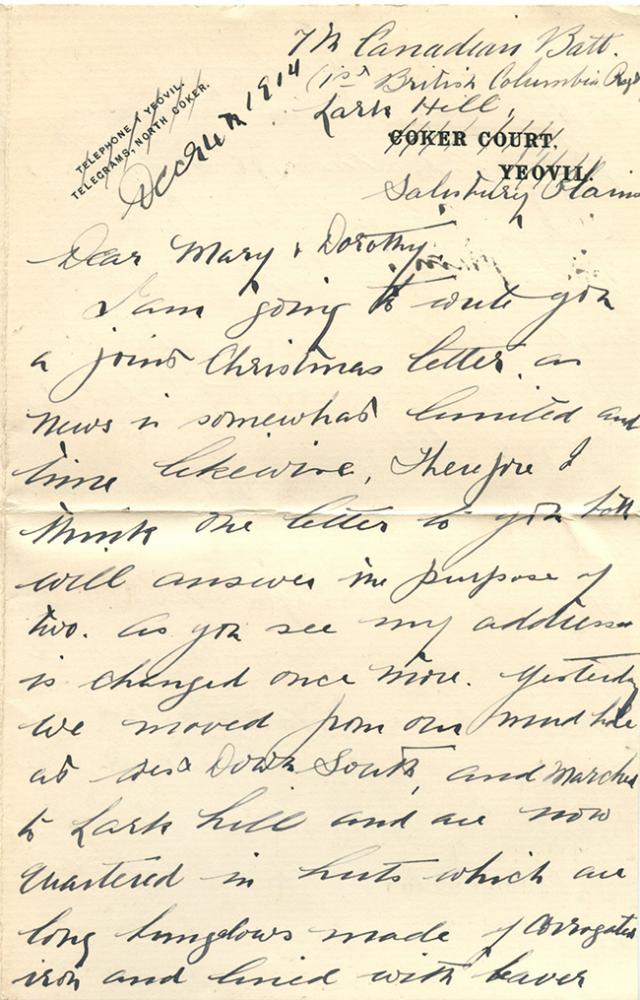 7th Canadian Batt.
(1st British Columbia Regt
Lark Hill,
TELEPHONE 1 YEOVIL.
TELEGRAMS, NORTH COKER.
1914
COKER COURT,
YEOVIL.
Salisbury Plains
Dear Mary & Dorothy
I am going to write you
a joint Christmas letter, as
news is somewhat limited and
time likewise, Therefore I
think one letter to you both
will answer the purpose of
two. As you see my address
is changed once more. Yesterday
we moved from our mud hole
at West Down South, and Marched
to Lark hill and are now
quartered in huts which are
long bungelows made of corrogated
iron and lined with beaver